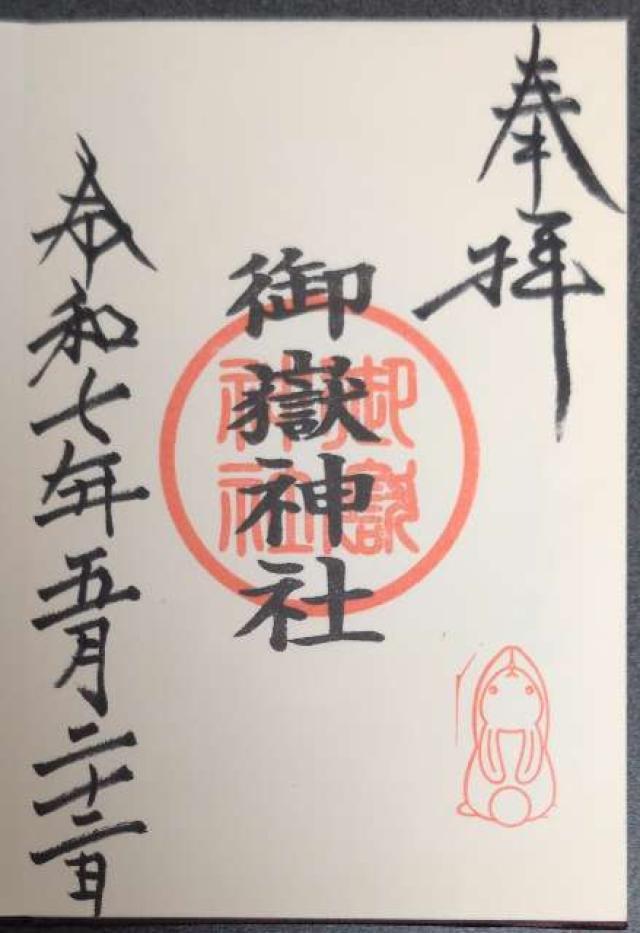 奉拝
御嶽神社
御嶽神社
令和七年五月二十二日